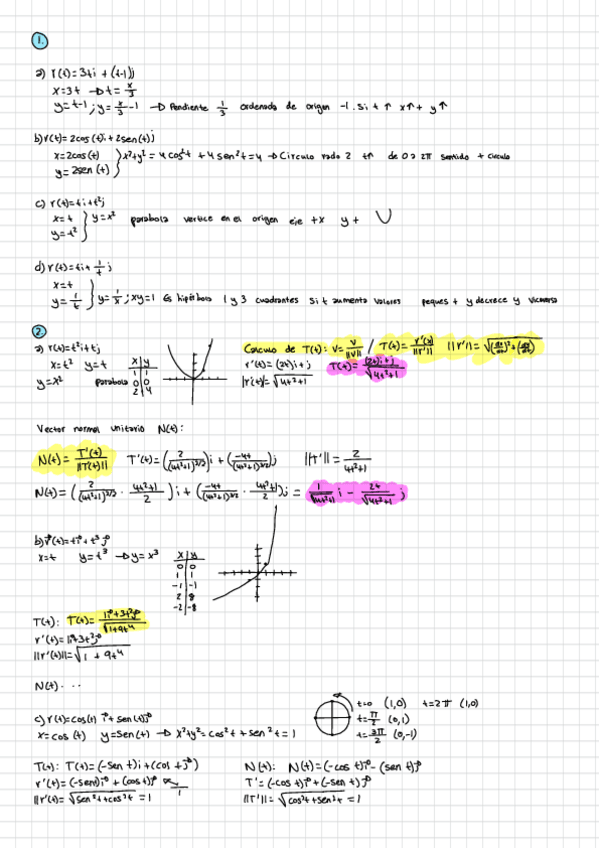 1.
a) r(t)=3ti + (t-1)j
x=3t → t= x/3
y=t-1 ; y= x/3 -1 → Pendiente 1/3 ordenada de origen -1. Si t ↑ x↑ + y↑
b) r(t)= 2cos(t)i+2sen(t)j
x=2cos(t)
y=2sen(t) } x²+y²=4cos²t +4sen²t=4 → Circulo radio 2 t↑ de 0 a 2π sentido + circulo
c) r(t)=ti+t²j
x=t
y=t² } y=x² parabola vertice en el origen eje +x y+
d) r(t)=ti+ 1/t j
x=t
y= 1/t } y= 1/x ; xy=1 Es hipérbola 1 y 3 cuadrantes Si t aumenta valores peques + y decrece y viceversa
2.
a) r(t)=t²i+tj
x=t² y=t
y=x² parabola
x y
0 0
1 1
2 4
Calculo de T(t): v= v/||v|| / T(t)= r'(t)/||r'|| ||r'||= √((dx/dt)²+(dy/dt)²)
r'(t)=(2t)i+j T(t)= (2t)i+j/√4t²+1
|r'(t)|= √4t²+1
Vector normal unitario N(t):
N(t)= T'(t)/||T'(t)|| T'(t)=(2/(4t²+1)^3/2)i + (-4t/(4t²+1)^3/2)j ||T'||= 2/4t²+1
N(t)= (2/(4t²+1)^3/2 · 4t²+1/2)i + (-4t/(4t²+1)^3/2 · 4t²+1/2)j = 1/√4t²+1 i - 2t/√4t²+1 j
b) r(t)=ti+t³j
x=t y=t³ → y=x³
x y
0 0
1 1
-1 -1
2 8
-2 -8
T(t): T(t)= 1i+3t²j/√1+9t⁴
r'(t)=1i+3t²j
||r'(t)||=√1+9t⁴
N(t)...
c) r(t)=cos(t) i+sen(t)j
x=cos(t) y=sen(t) → x²+y²=cos²t+sen²t=1
t=0 (1,0) t=2π (1,0)
t= π/2 (0,1)
t= 3π/2 (0,-1)
T(t): T(t)=(-sen t)i+(cos t j)
r'(t)=(-sent)i+(cos t)j
||r'(t)= √sen²t+cos²t =1
N(t): N(t)=(-cos t)i-(sen t)j
T'=(-cos t)i+(-sen t)j
||T'||= √cos²t+sen²t =1